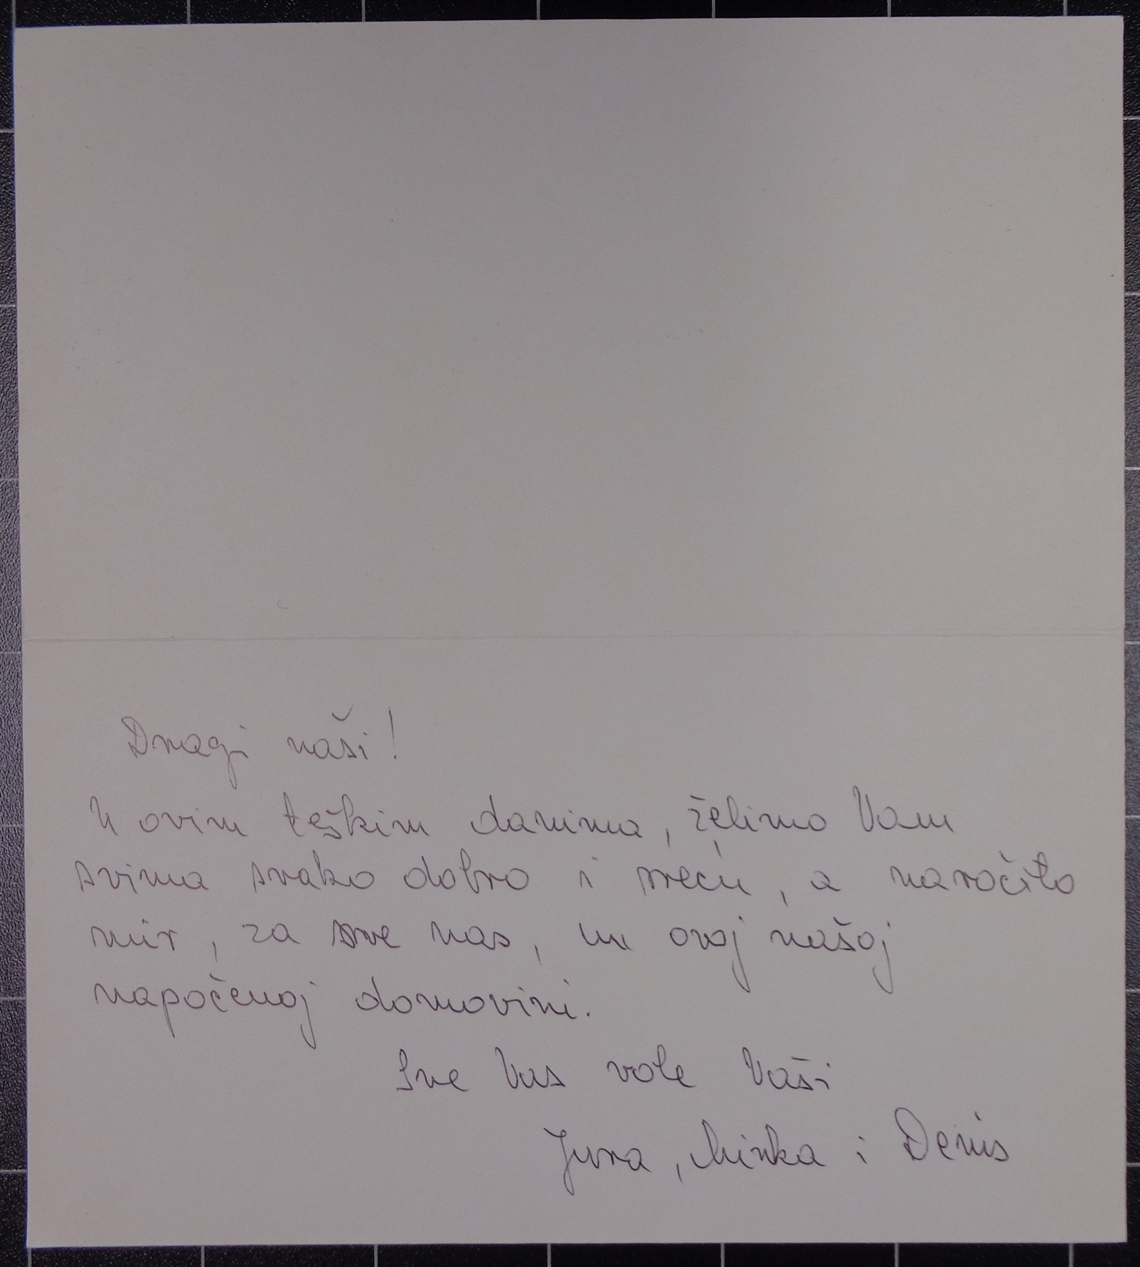 Dragi naši!
U ovim teškim danima, želimo Vam
svima svako dobro i sreću, a naročito
mir, za sve nas, u ovoj našoj
napaćenoj domovini.
Sve Vas vole Vaši
Jura, Mirka i Denis